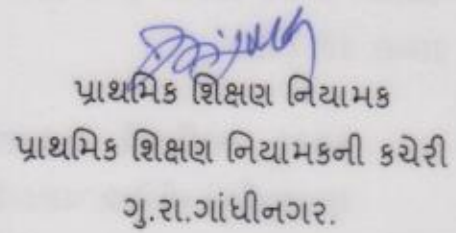 પ્રાથમિક શિક્ષણ નિયામક
પ્રાથમિક શિક્ષણ નિયામકની કચેરી
ગુ.રા.ગાંધીનગર.